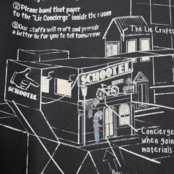 ②Please hand that paper
to the "Lie Concierge" inside the room
③Our staffs will craft and provide
a better lie for you to tell tomorrow
The Lie Crafts
SCHOOTEL
SCHOOTEL
Concierge
when goin
materials